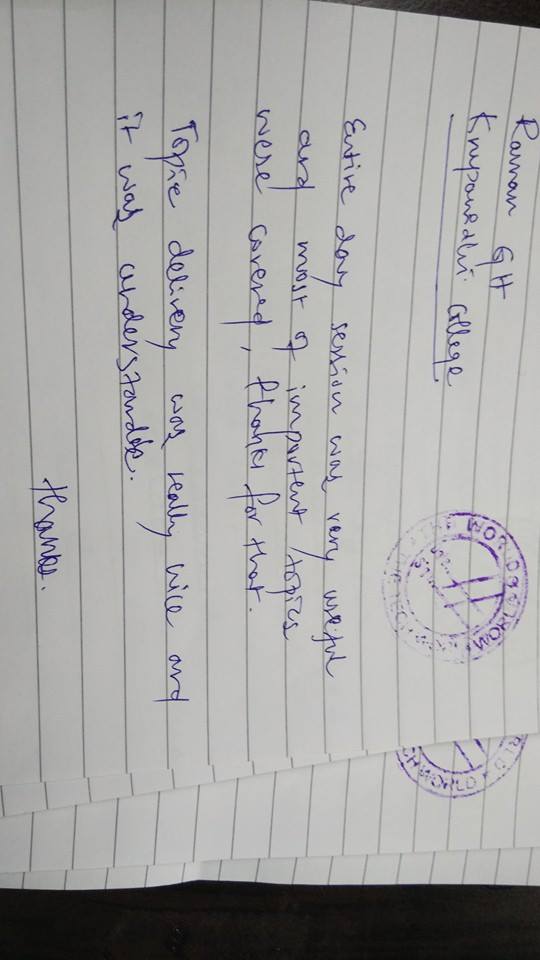 Raman GH
College
Entire day session was very useful
and most of important topics
were covered, thanks for that.
Topic delivery was really nice and
it was understandble.
thanks.
WORLD
CH WORLD